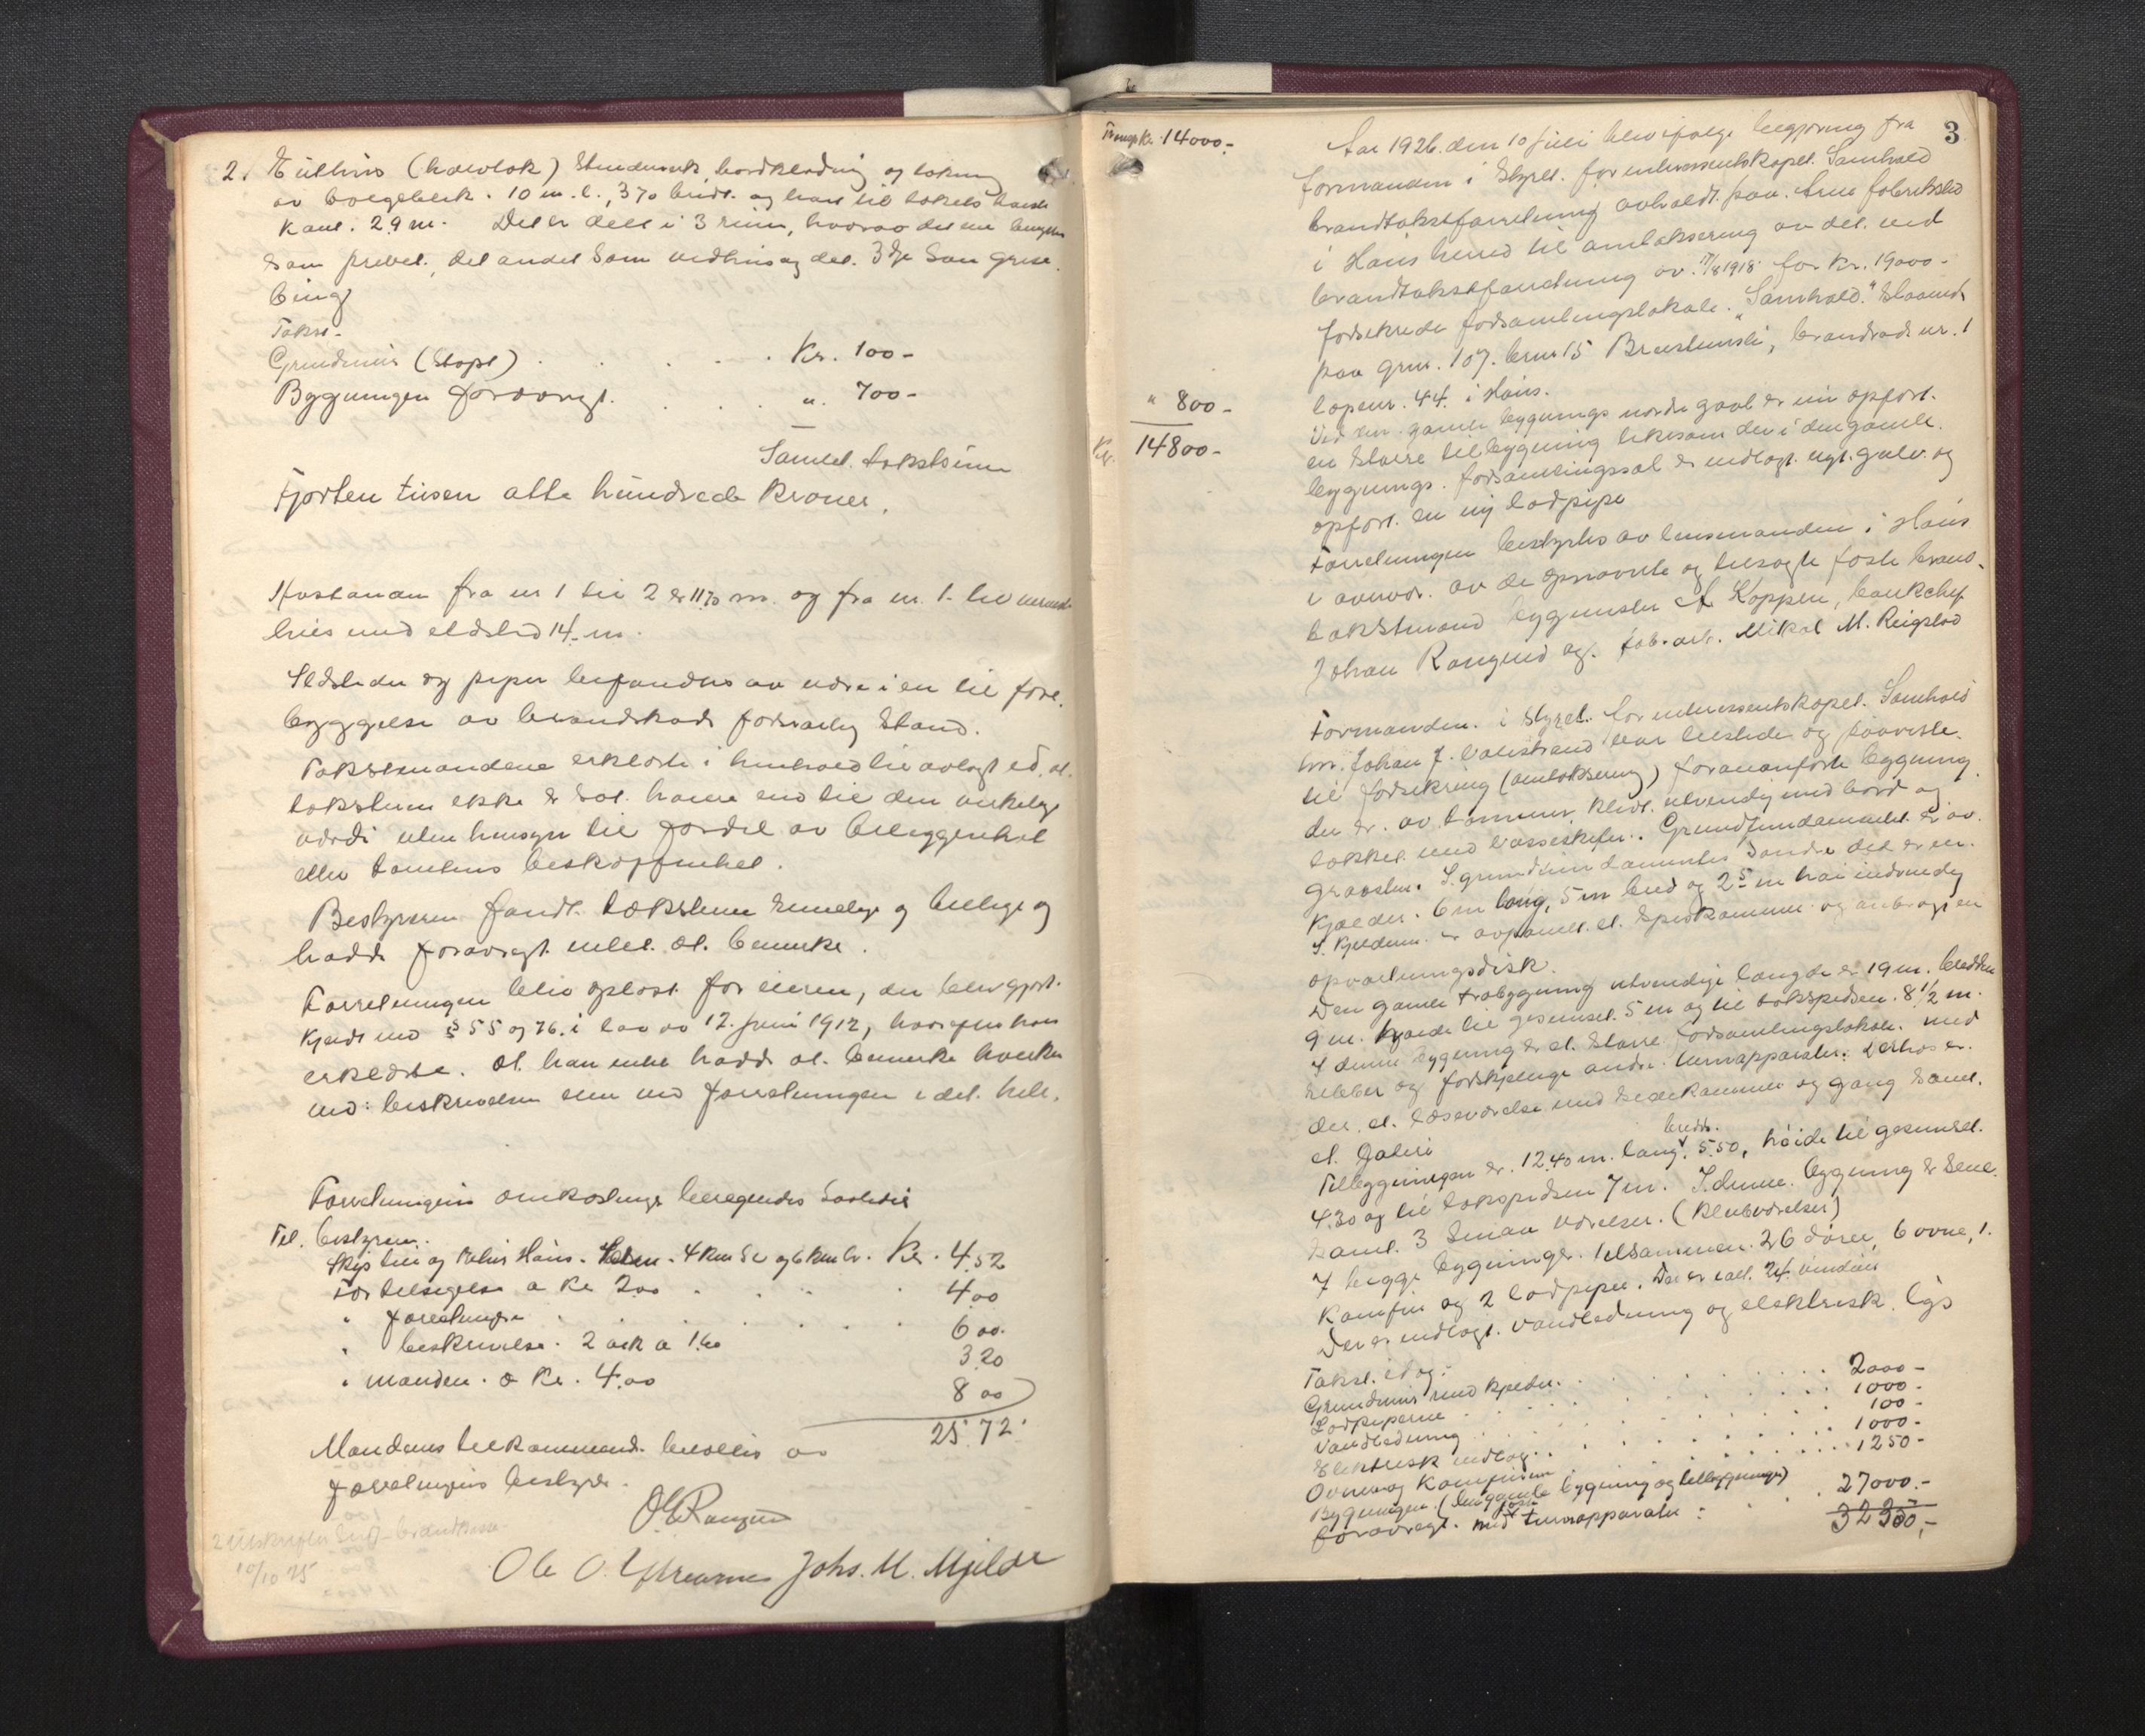 2. Uthus (halvtak) Stenderverk, bordklædning og tækning
av bølgeblik. 10 m. l., 370 bredt. og høit til takets høieste
kant. 2.9 m. Det er delt i 3 rum, hvorav det ene benyttes
som privet, det andet som vedhus og det. 3dje som grise
binge
Takst.
Grundmur (støpt) . . . . . Kr. 100-
Bygningen forøvrigt. . . . " 700-
" 800-
Samlet takstsum
Kr. 14800-
Fjorten tusen otte hundrede kroner.
Avstanden fra nr 1 til 2 er 11.70 m. og fra nr. 1 til nærmeste
hus med ildsted 14. m.
Ildsteder og piper befandtes at være i en til fore-
byggelse av brandskade forsvarlig stand.
Takstmændene erklærte i henhold til avlagt ed, at
takstsum ikke er sat høiere end til den virkelige
værdi uten hensyn til fordel av beliggenhet
eller tomtens beskaffenhet.
Bestyreren fandt takstsum rimelige og billige og
hadde forøvrigt intet at bemerke.
Forretningen blev oplæst for eieren, der blev gjort
kjendt med § 55 og 76 i lov av 12. juni 1912, hvorefter han
erklærte. at han intet hadde at bemerke hverken
ved beskrivelsen eller ved forretningen i det hele.
Forretningens omkostninger beregnedes saaledes
Til bestyreren.
Skyss til og fra Haus. 4 km Sc og 6 km b. Kr. 4.52
For tilsigelse a Kr 2.00 . . . . 4.00
" forretningen . . . . . 6.00
" beskrivelse. 2 ark a 1.60 3.20
" mændene. a Kr. 4.00 8.00
25.72
Mændenes tilkommende. utbetales av
forretningens bestyrer.
O G Rangum
Ole O. Ytrearne Johs. M. Mjelde
2 utskrifter sendt brandkassen
10/10 25
3
Transp. Kr. 14000.-
Aar 1926. den 10 juli blev ifølge begjæring fra
formanden i styret. for interessentskapet. Samhold
brandtakstforretning avholdt. paa. Arne fabriksted
i Haus herred til omtaksering av det. ved
brandtakstforretning av 17/8 1918 for kr. 19000-
forsikrede forsamlingslokale. "Samhold." staaende
paa grnr. 107. brnr 15 Bruslunsli, brandrode nr. 1
løpenr. 44. i Haus.
Ved den gamle bygnings nordre gavl er nu opført.
en større tilbygning likesom der i den gamle.
bygnings. forsamlingssal er indlagt nyt. gulv. og
opført. en ny lodpipe
Forretningen bestyrtes av lensmanden i Haus
i overvær. av de opnævnte og tilsagte faste brand-
takstmænd bygmester A Koppen, bankchef
Johan Rongved og. fab.arb. Mikal M. Reigstad
Formanden. i styret. for interessentskapet. Samhold
hr. Johan J. Valestrand var tilstede og paaviste.
til forsikring (omtaksering) foranførte bygning.
der er. av tømmer, klædt. utvendig med bord og
tækket med tavleskifer. Grundfundamentet er av.
graasten. I grundfundamentets søndre del er en.
kjælder. 6 m lang, 5 m bred og 2.5 m høi indvendig
I kjælderen er avpanelt et. spiskammer og anbragt en
opvartningsdisk.
Den gamle træbygning utvendige længde er 19 m. bredden
9 m. høide til gesimset. 5 m og til takspidsen. 8 1/2 m.
I denne bygning er et. større forsamlingslokale. med
ribber og forskjellige andre. turnapparater. Derhos er.
der. et. læseværelse med sidekammer og gang samt.
et. galleri
Tilbygningen er. 12.40 m. lang, bredde. 5.50, høide til gesimset.
4.30 og til takspidsen 7 m. I denne. bygning er scene.
samt. 3 smaa værelser. (Klubværelser)
I begge bygninger. tilsammen. 26 dører, 6 ovne, 1.
komfur og 2 lodpiper. Der er ialt. 24. vinduer
Der er indlagt. vandledning og elektrisk. lys
Takst. idag:
Grundmur med kjælder. . . . . 2000-
Lodpiperne . . . . . 1000-
Vandledning . . . . . 100-
Elektrisk indlæg. . . . . 1000-
Ovner og komfuren . . . . 1250-
Bygningen. (den gamle bygning og tilbygninger)
forøvrigt. med faste turnapparater : 27000.-
32350,-